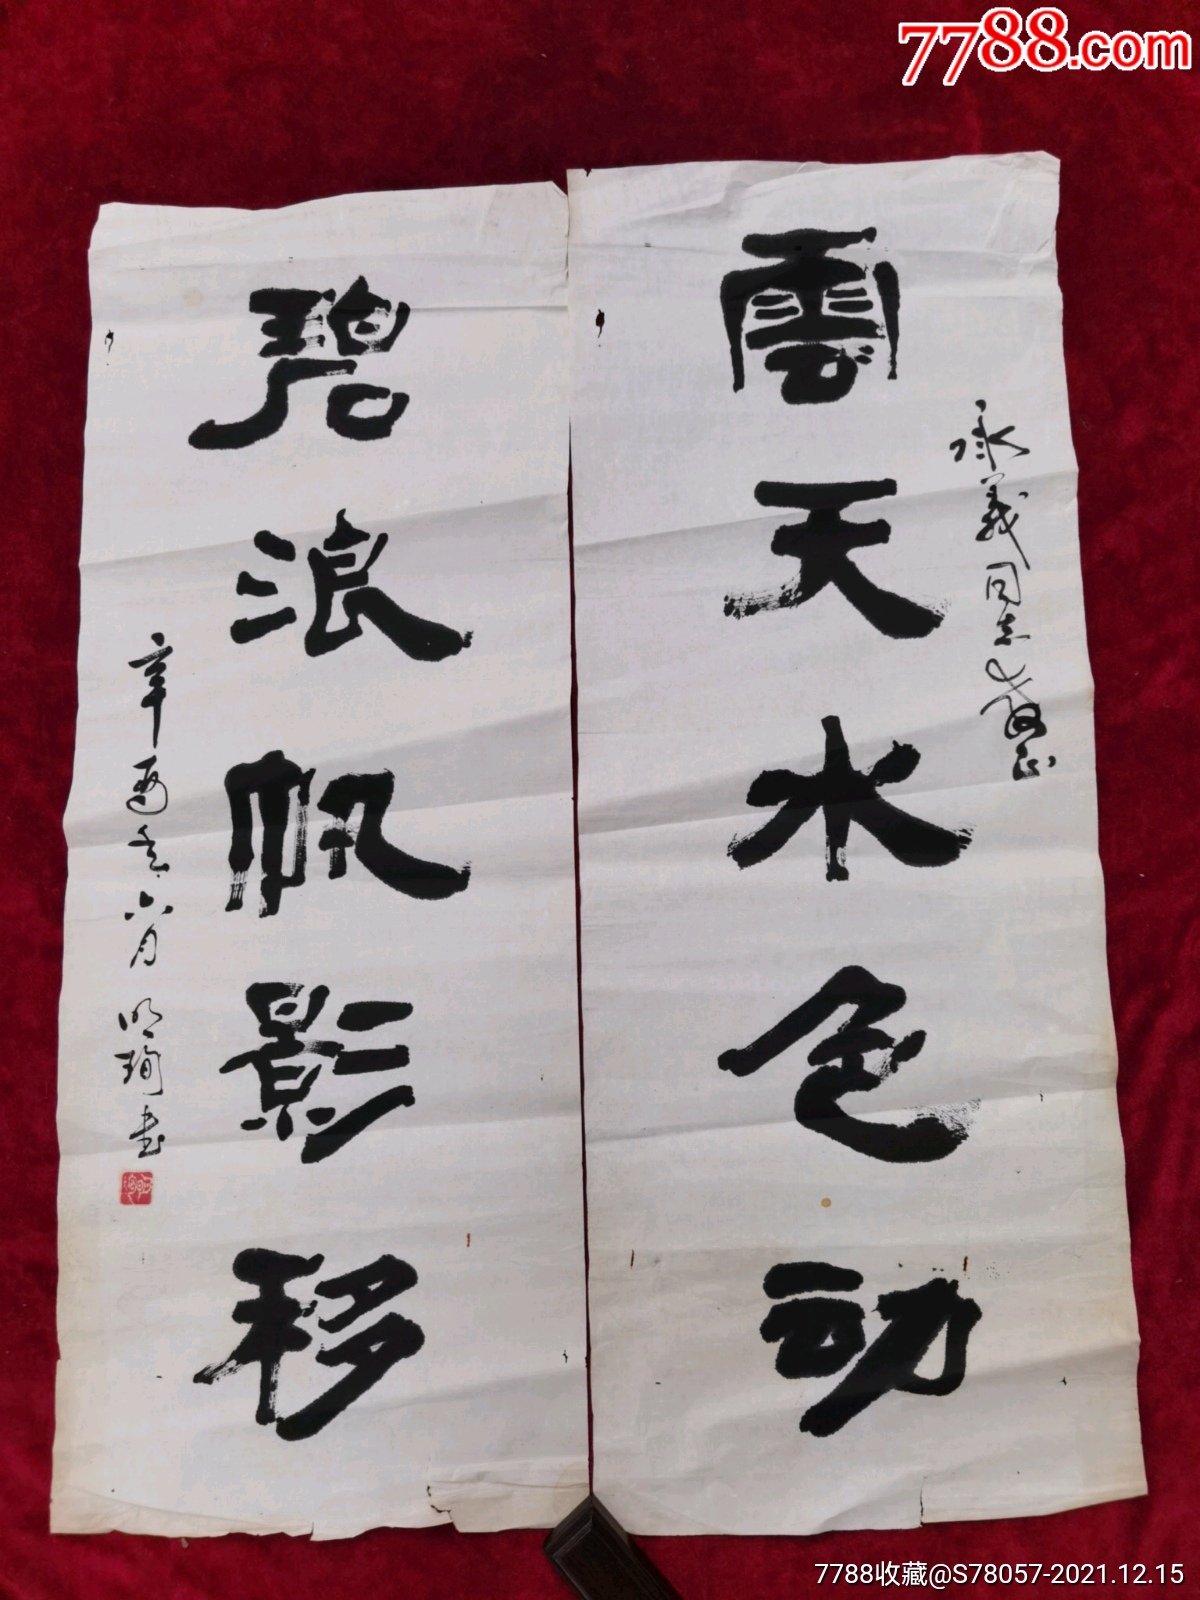 7788.com
永義同志教正
雲天水色動
碧浪帆影移
辛酉年六月明珣書
7788收藏@S78057-2021.12.15